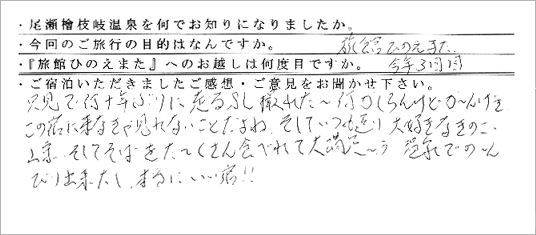 ・尾瀬檜枝岐温泉を何でお知りになりましたか。
・今回のご旅行の目的はなんですか。 旅館ひのえまた
・『旅館ひのえまた』へのお越しは何度目ですか。 今年3回目
・ご宿泊いただきましたご感想・ご意見をお聞かせ下さい。
只見で何十年ぶりに走る 撮れた〜何
この宿に来なきゃ見れないことだよね、そしていつも通り大好きなきのこ、
山菜、そしてそばをた〜くさん食べれて大満足〜う 温泉でのーん
びり出来たし、本当にいい宿!!